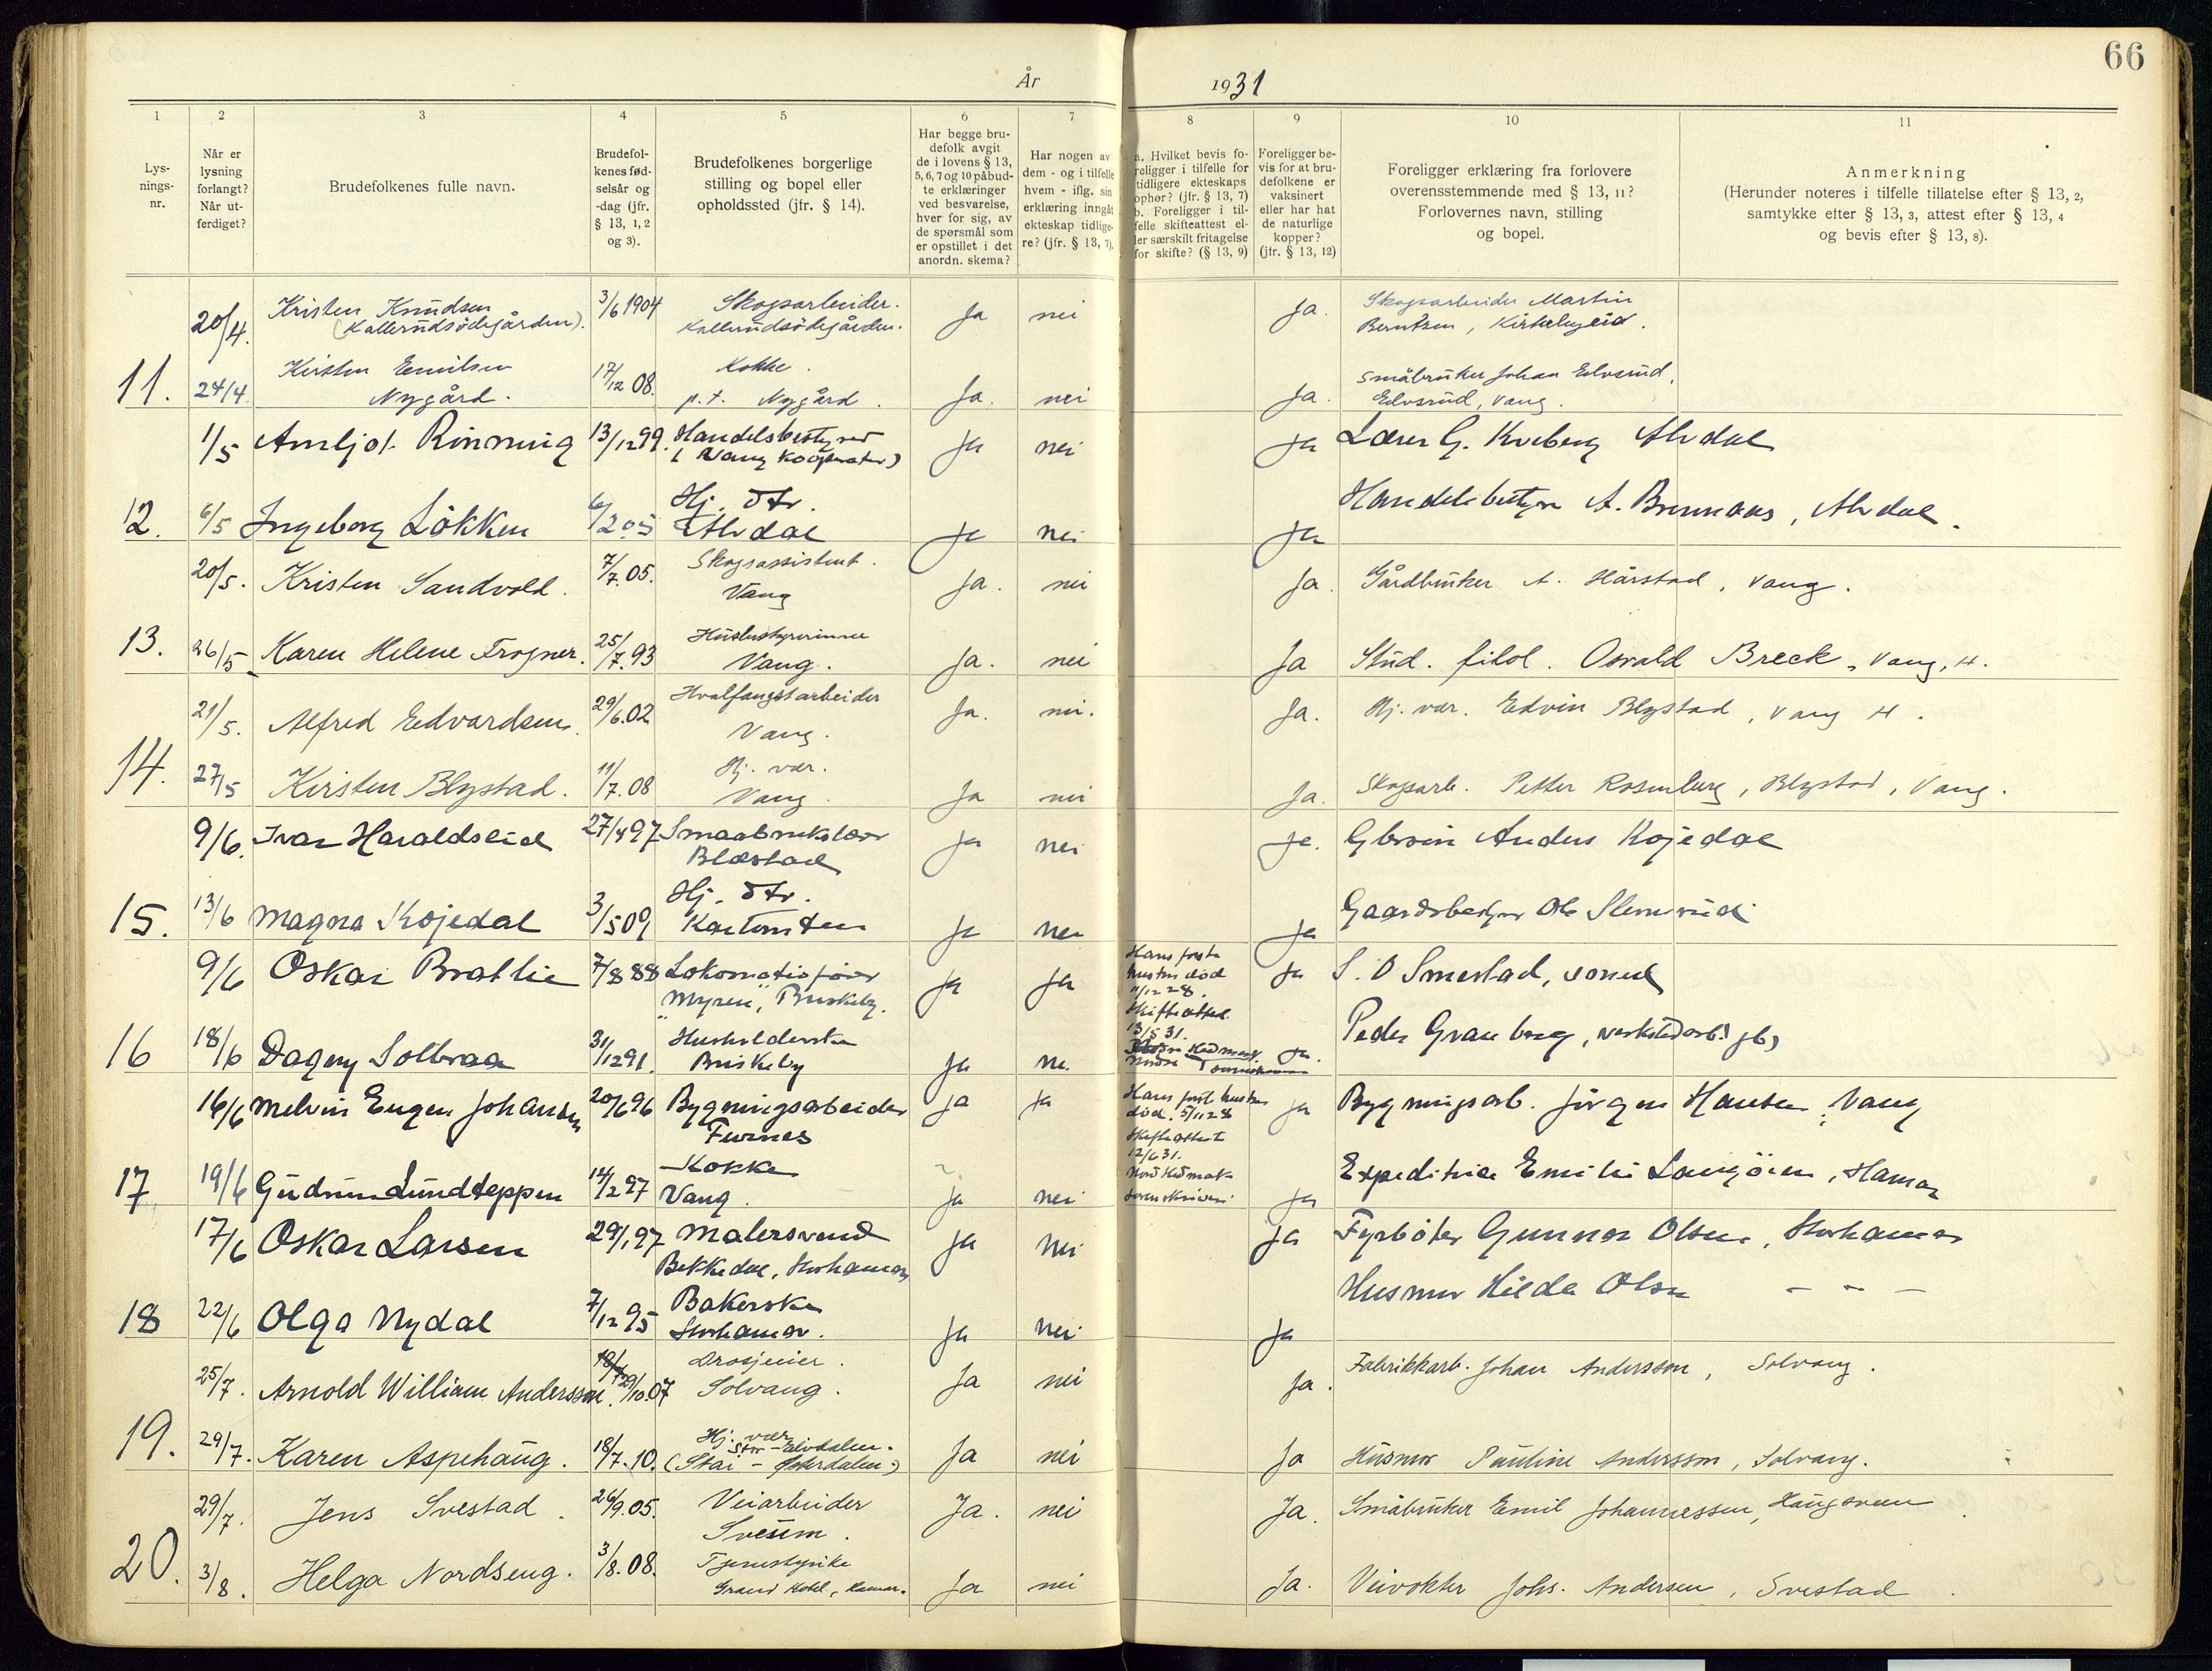 66
År 1931
1 2 3 4 5 6 7 8 9 10 11
Lys-
nings-
nr.
Når er
lysning
forlangt?
Når ut-
ferdiget?
Brudefolkenes fulle navn.
Brudefol-
kenes fød-
selsår og
-dag (jfr.
§ 13, 1, 2
og 3).
Brudefolkenes borgerlige
stilling og bopel eller
opholdssted (jfr. § 14).
Har begge bru-
defolk avgit
de i lovens § 13,
5, 6, 7 og 10 påbud-
te erklæringer
ved besvarelse,
hver for sig, av
de spørsmål som
er opstillet i det
anordn. skema?
Har nogen av
dem - og i tilfelle
hvem - iflg. sin
erklæring inngåt
ekteskap tidlige-
re? (jfr. § 13, 7).
a. Hvilket bevis fo-
religger i tilfelle for
tidligere ekteskaps
ophør? (jfr. § 13, 7)
b. Foreligger i til-
felle skifteattest el-
ler særskilt fritagelse
for skifte? (§ 13, 9)
Foreligger be-
vis for at bru-
defolkene er
vaksinert
eller har hat
de naturlige
kopper?
(jfr. § 13, 12)
Foreligger erklæring fra forlovere
overensstemmende med § 13, 11?
Forlovernes navn, stilling
og bopel.
Anmerkning
(Herunder noteres i tilfelle tillatelse efter § 13, 2,
samtykke efter § 13, 3, attest efter § 13, 4
og bevis efter § 13, 8).
20/4. Kristen Knudsen 3/6 1904 Skogsarbeider. Ja nei Ja. Skogsarbeider Martin
(Kallerudsødegården). Kallerudsødegården. Berntsen, Kirkebyeid.
11. 24/4. Kirsten Emilsen 17/12 08. Kokke. Ja. nei Ja. Småbruker Johan Edvsrud,
Nygård. p.t. Nygård. Edvsrud, Vang.
1/5 Arnljot Rinning 13/12 99. Handelsbestyrer Ja nei Ja Lærer G. Kveberg Alvdal
(Vang Kooperativ)
12. 6/5 Ingeborg Løkken 6/2 05 Hj. dtr. Ja nei Ja Handelsbestyrer A. Brennaas, Alvdal.
Alvdal
20/5. Kristen Sandvold. 7/7.05. Skogsassistent. Ja. nei Ja. Gårdbruker A. Hårstad, Vang.
Vang
13. 26/5 Karen Helene Frogner. 25/7.93 Husbestyrerinne Ja. nei Ja Stud. filol. Osvald Breck, Vang, H.
Vang.
21/5. Alfred Edvardsen. 29/6.02 Hvalfangstarbeider Ja. nei. Ja. Hj. vær. Edvin Blystad, Vang H.
Vang.
14. 27/5 Kirsten Blystad. 11/7.08 Hj. vær. Ja nei Ja. Skogsarb. Petter Rosenberg, Blystad, Vang.
Vang.
9/6. Ivar Haraldseid 27/4 97 Smaabrukslærer Ja nei Ja. Gbr.søn Anders Kojedal
Blæstad
15. 13/6 Magna Kojedal 3/5 09 Hj. dtr. Ja nei Ja Gaardsbestyrer Ole Slemsrud
9/6 Oskar Bratlie 7/8 88 Lokomotivfører Ja Ja Hans første Ja S. O Smestad,
"Myren", Briskeby. hustru død
11/12 28.
Skifteattest
13/5 31.
16 18/6 Dagny Solbraa 31/12 91. Husholderske Ja nei Ja. Peder Granberg, verkstedarb.
Briskeby
16/6 Melvin Eugen Johansen 20/6 96 Bygningsarbeider Ja Ja Hans forl. hustru Ja Bygningsarb. Jørgen Hansen, Vang
Furnes død. 5/11 28
Skifteattest
12/6 31.
Nord Hedmark
sorenskriveri
17 19/6 Gudrun Lundteppen 14/2 97 Kokke Ja nei Ja Expeditrice Emilie Langøien, Hamar
Vang.
17/6 Oskar Larsen 29/1 97 Malersvend Ja Nei Ja Fyrbøter Gunnar Olsen, Storhamar
Bekkedal, Storhamar
18 22/6 Olga Nydal 7/12 95 Bakerske Ja Nei Ja Husmor Hilda Olsen – – –
Storhamar.
25/7. Arnold William Andersson. 29/10.07 Drosjeeier. Ja nei Ja. Fabrikkarb. Johan Andersson, Solvang.
Solvang.
19. 29/7. Karen Aspehaug. 18/7.10. Hj. vær Ja nei Ja Husmor Pauline Andersson, Solvang.
Stor-Elvdalen.
(Stai – Østerdalen.)
29/7. Jens Svestad. 26/9.05. Veiarbeider Ja. nei Ja. Småbruker Emil Johannessen, Haugsveen.
Sveum.
20. 3/8. Helga Nordseng. 3/8.08. Tjenestepike Ja nei Ja. Veivokter Johs. Andersen, Svestad.
Grand Hotel, Hamar.